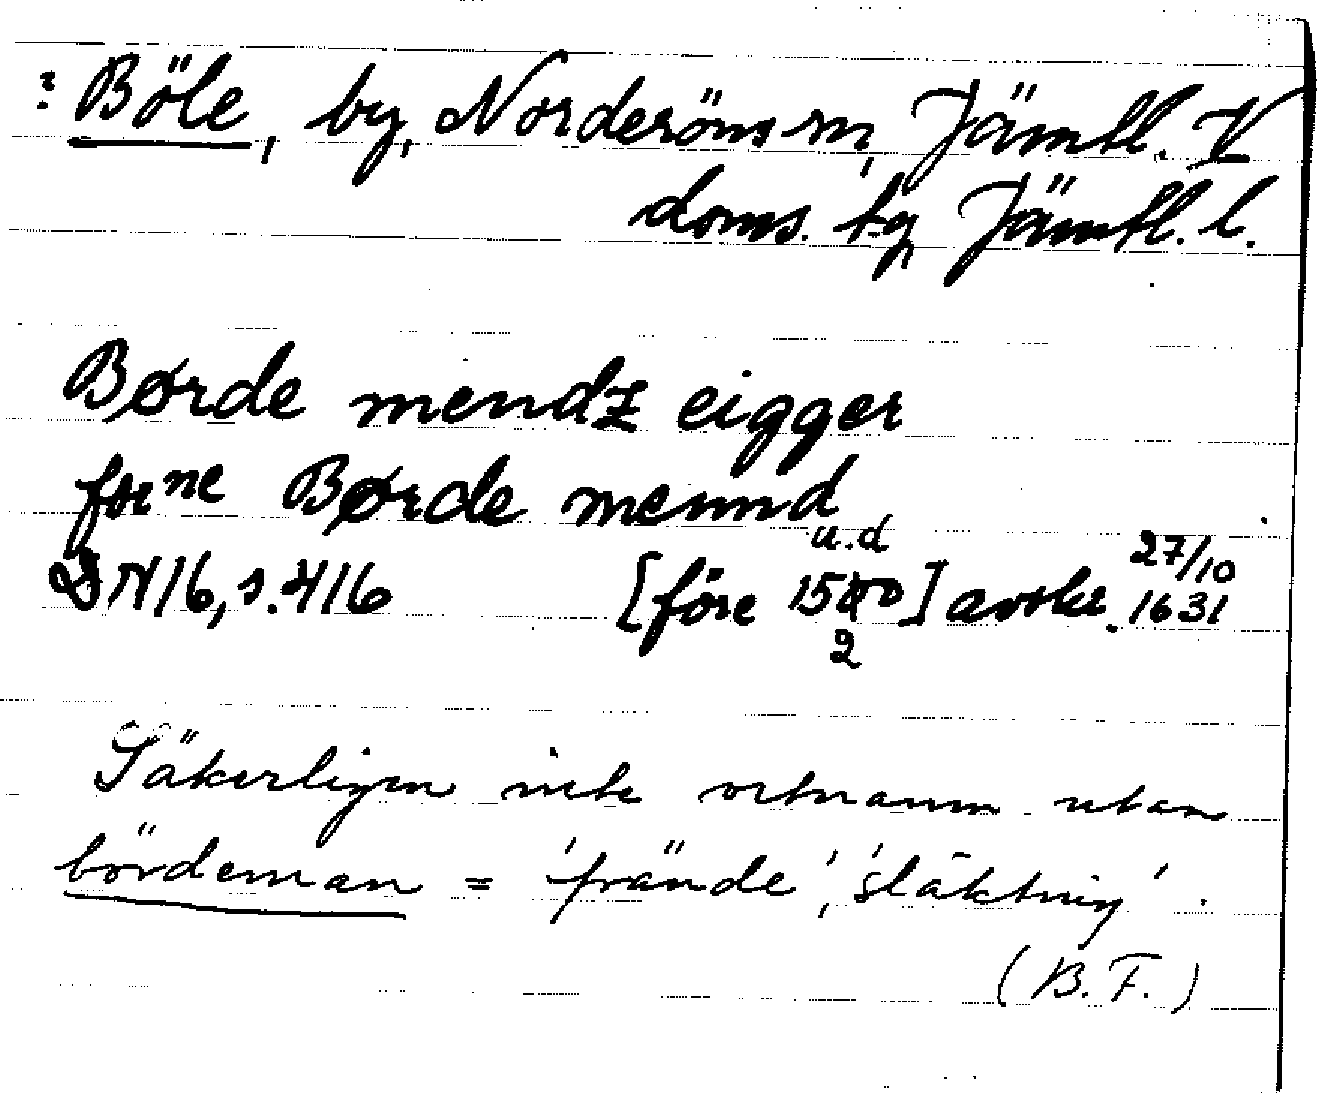 ? Böle, by, Norderöns sn, Jämtl. V
doms. tg, Jämtl. l.
Børde mendz eigger
forne Børde mennd
u.d 27/10
DN16, s. 416 [före 1500] avskr. 1631
2
Säkerligen inte ortnamn utan
bördeman = 'frände', 'släkting'.
(B.F.)